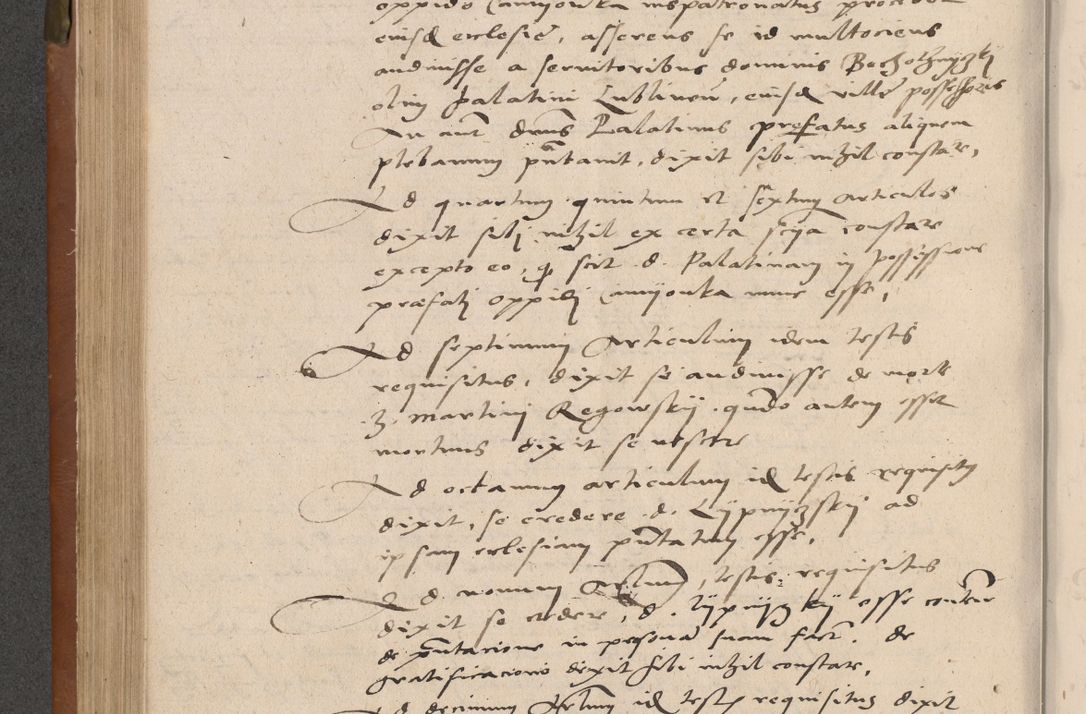 oppido Camyonka iuspatronatus
eiusd ecclesie, asserens se id multociens
audiuisse a seruitoribus dominis
olim Palatini Lublinen, eiusd ville possessoris
An aut dnus Palatinus prefatus aliquem
plebanum pntauit, dixit sibi nihil constare,
Ad quartum quintum et sextum articulos
dixit sibi nihil ex certa scia constare
excepto eo, scit d. Palatinam in possessione
præfati oppidi Camyonka nunc esse,
Ad septimum Articulum idem testis
requisitus, dixit se audiuisse de morte
Martini Regowskij quando autem esset
mortuus dixit se nescire
Ad octauum articulum id testis requisitus
dixit, se credere d. Lypnyzskij ad
ipsam ecclesiam pntatum esse,
Ad nonum Artlum, testis requisitus
dixit se credere, d. Lypnyzskij esse
de pntacione in personam suam fact. de
gratificacione dixit sibi nihil constare,
Ad decimum Artlum id testis requisitus dixit